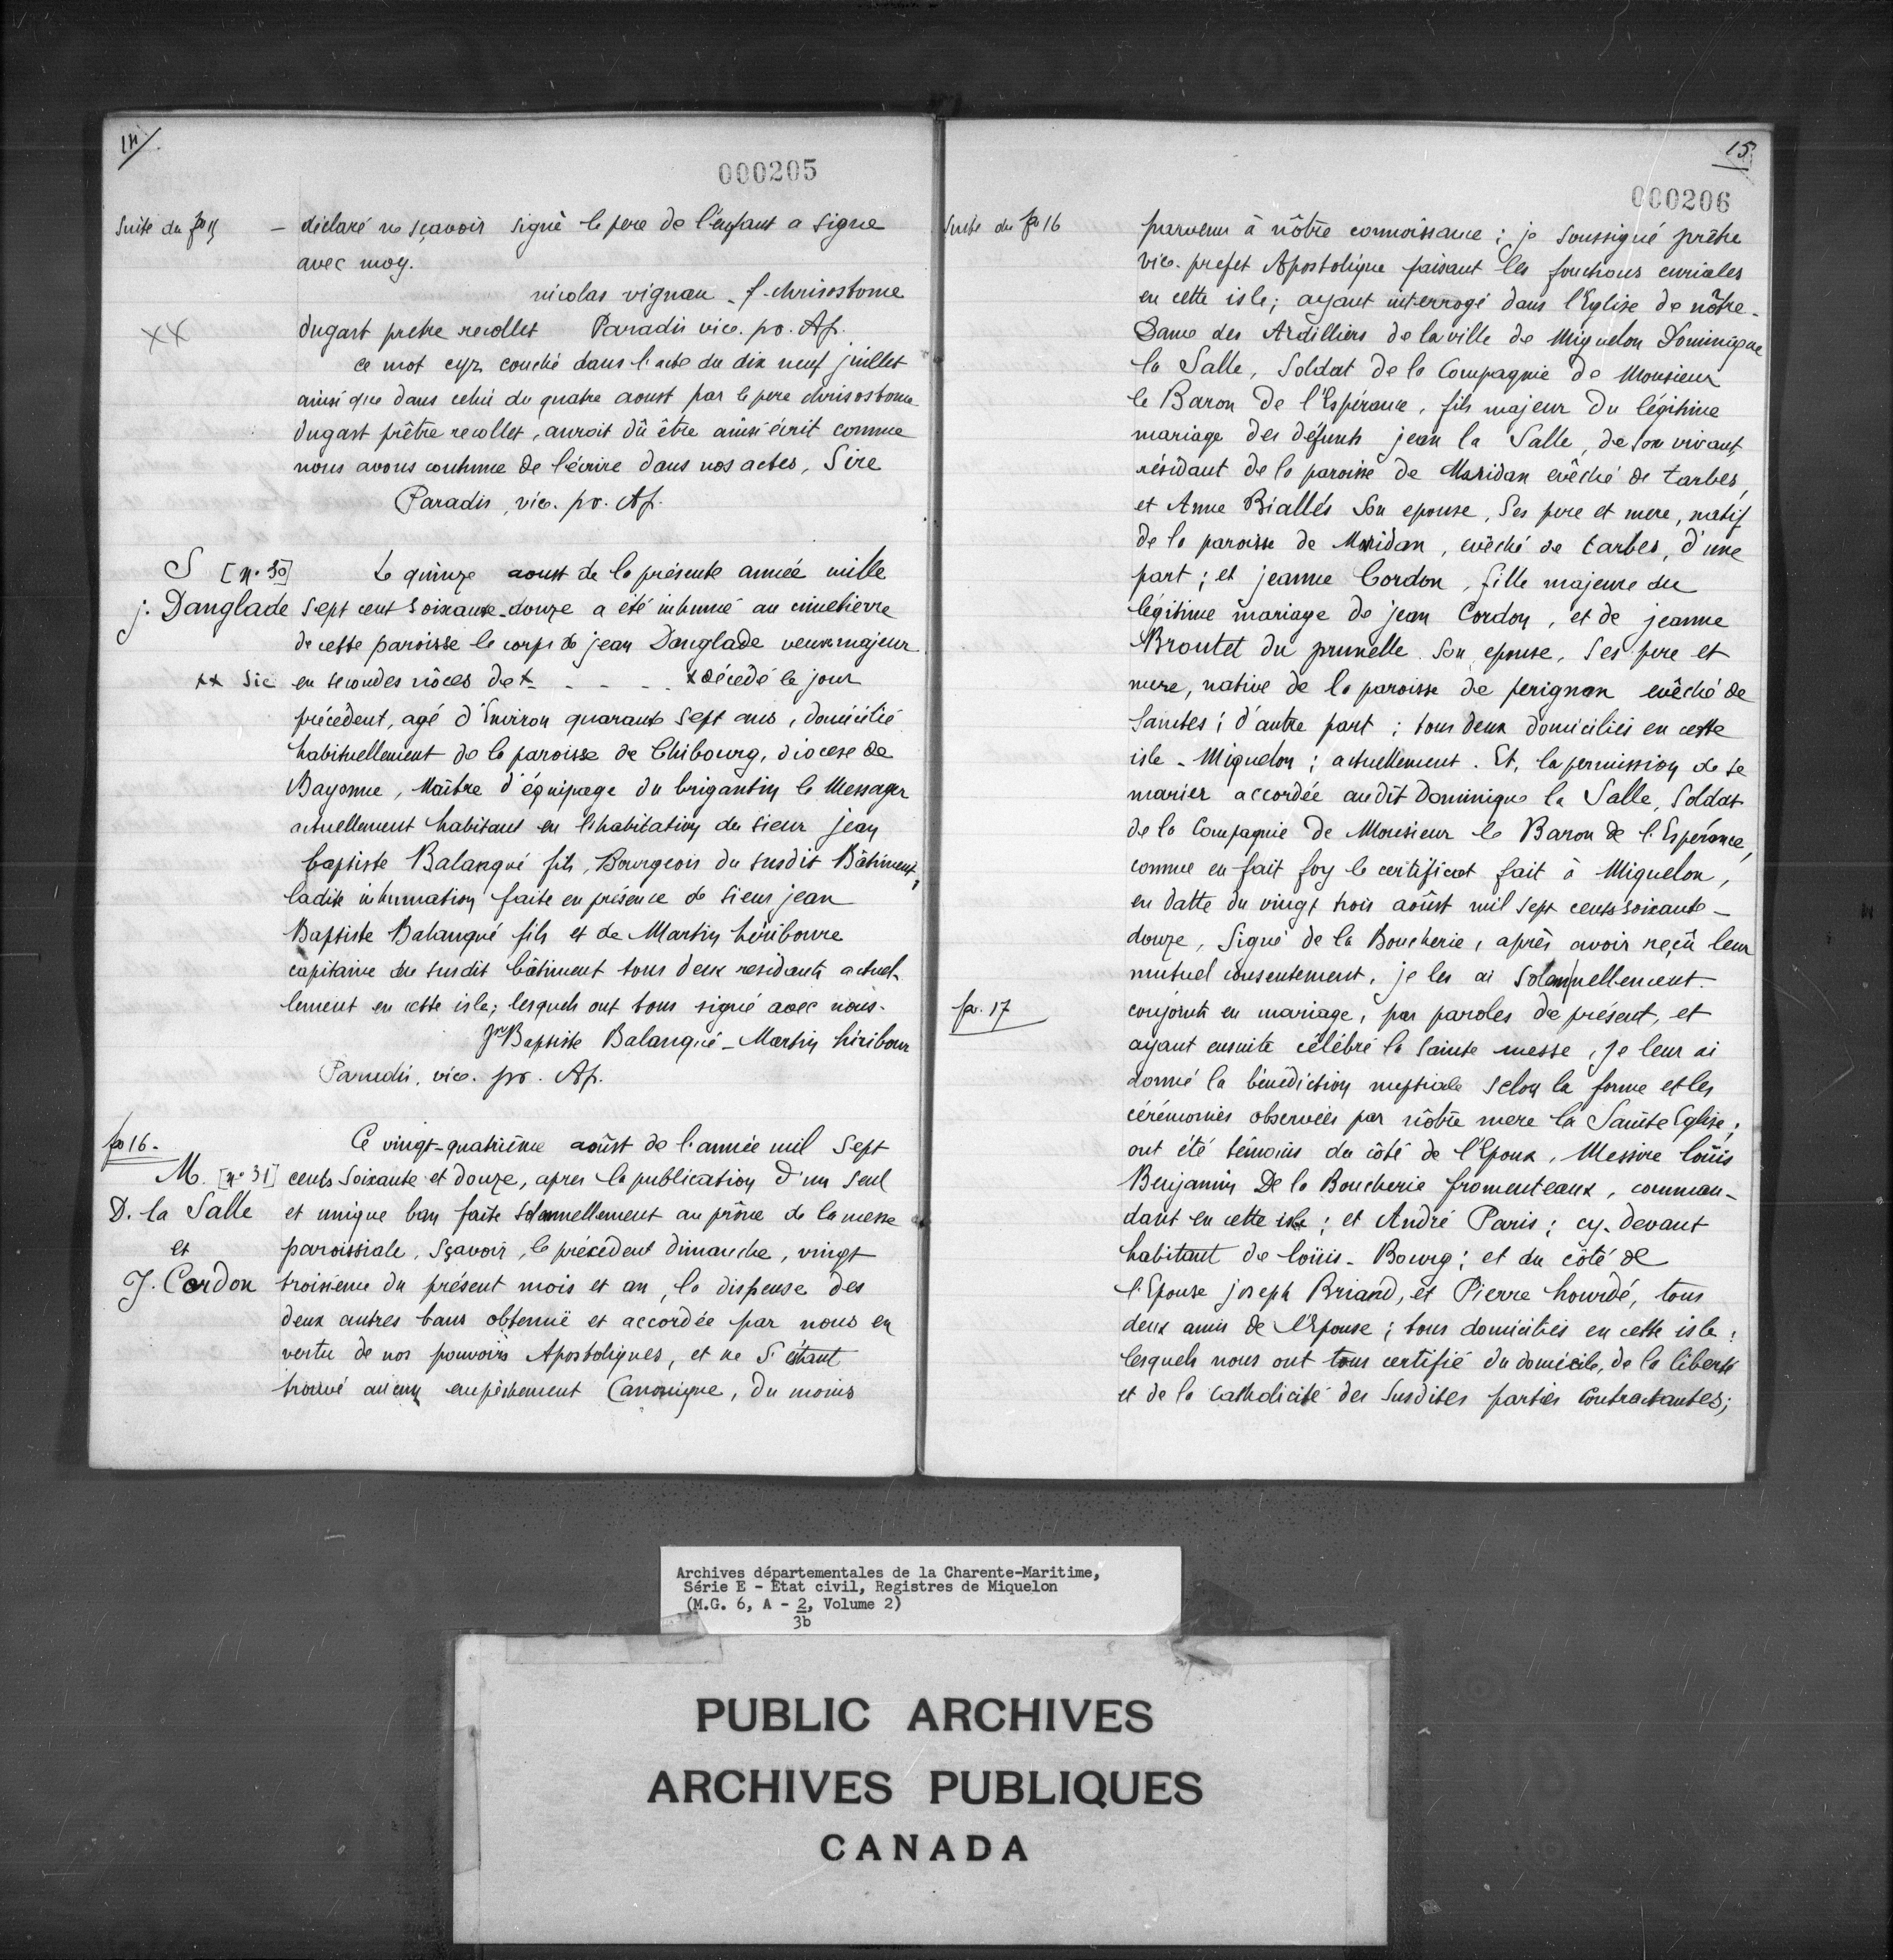 14
000205
Suite du fo 15 — déclaré ne sçavoir signé le pere de l'enfant a signe
avec moy.
nicolas vignau - f. chrisostome
xx dugast pretre recollet Paradis vice. pr. Ap.
ce mot cyr couché dans l'acte du dix neuf juillet
ainsi que dans celui du quatre aoust par le pere chrisostome
dugast prêtre recollet, auroit dû être ainsi écrit comme
nous avons coutume de l'écrire dans nos actes, Sire
Paradis, vice. pr. Ap.
S [n° 30] Le quinze aoust de la présente année mille
j. Danglade sept cent soixante-douze a été inhumé au cimetierre
de cette paroisse le corps de jean Danglade veuf majeur
xx sic en secondes nôces de x - - - - x décédé le jour
précédent, agé d'Environ quarante sept ans, domicilié
habituellement de la paroisse de Chibourg, diocese de
Bayonne, Maître d'équipage du brigantin le Messager
actuellement habitant en l'habitation du sieur jean
baptiste Balanqué fils, Bourgeois du susdit Bâtiment,
ladite inhumation faite en présence de sieur jean
Baptiste Balanqué fils et de Martin hiriboure
capitaine du susdit bâtiment tous deux residants actuel-
lement en cette isle; lesquels ont tous signé avec nous.
Jn Baptiste Balanqué - Martin hiribour
Paradis, vice. pr. Ap.
fo 16. Ce vingt-quatrième aoûst de l'année mil Sept
M. [n° 31] cents Soixante et douze, apres la publication d'un seul
D. la Salle et unique ban faite Solennellement au prône de la messe
et paroissiale, Sçavoir, le précédent dimanche, vingt
J. Cordon troisieme du présent mois et an, la dispense des
deux autres bans obtenuë et accordée par nous en
vertu de nos pouvoirs Apostoliques, et ne S'étant
trouvé aucun empêchement Canonique, du moins
15
000206
Suite du fo 16 parvenu à nôtre connoissance; je soussigné prêtre
vice-prefet Apostolique faisant les fonctions curiales
en cette isle; ayant interrogé dans l'Eglise de nôtre-
Dame des Ardilliers de la ville de Miquelon Dominique
la Salle, Soldat de la Compagnie de Monsieur
le Baron de l'Espérance, fils majeur du légitime
mariage des défunts jean la Salle, de son vivant
résidant de la paroisse de Maridan evêché de tarbes,
et Anne Biallés son epouse, Ses pere et mere, natif
de la paroisse de Maridan, evêché de tarbes, d'une
part; et jeanne Cordon, fille majeure du
légitime mariage de jean Cordon, et de jeanne
Broutet du prunelle son epouse, Ses pere et
mere, native de la paroisse de perignan evêché de
Saintes; d'autre part; tous deux domiciliés en cette
isle - Miquelon; actuellement. Et, la permission de se
marier accordée audit Dominique la Salle, Soldat
de la Compagnie de Monsieur le Baron de l'Espérance,
comme en fait foy le certificat fait à Miquelon,
en datte du vingt trois aoûst mil sept cents soixante-
douze, Signé de la Boucherie, après avoir reçû leur
mutuel consentement, je les ai Solemnellement
fo. 17 conjoints en mariage, par paroles de présent, et
ayant ensuite célébré la Sainte messe, je leur ai
donné la bénédiction nuptiale selon la forme et les
cérémonies observées par nôtre mere la Sainte Eglise;
ont été témoins du côté de l'Epoux, Messire loüis
Benjamin De la Boucherie fromenteaux, comman-
dant en cette isle; et André Paris; cy-devant
habitant de loüis-Bourg; et du côté de
l'Epouse joseph Briand, et Pierre hourdé, tous
deux amis de l'Epouse; tous domiciliés en cette isle;
lesquels nous ont tous certifié du domicile, de la liberté
et de la Catholicité des Susdites parties Contractantes;
Archives départementales de la Charente-Maritime,
Série E - Etat civil, Registres de Miquelon
(M.G. 6, A - 2, Volume 2)
3b
PUBLIC ARCHIVES
ARCHIVES PUBLIQUES
CANADA